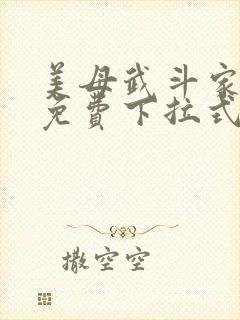 美母武斗家
免费下拉式
撒空空